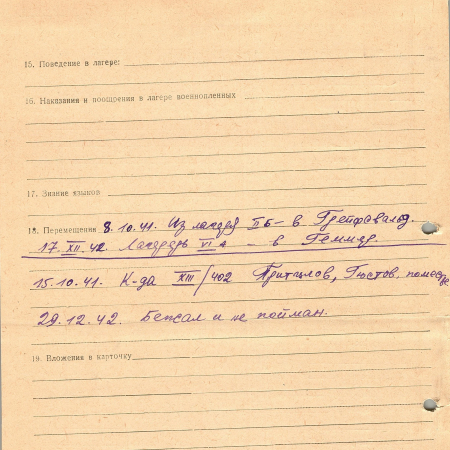 15. Поведение в лагере:
16. Наказания и поощрения в лагере военнопленных
17. Знание языков
18. Перемещения 8.10.41. Из лагеря IIБ - в Грейфсвальд.
17.XII.42. Лагерь VI А - в Геммер.
15.10.41. К-да XIII/402 Гюстов, поместье
29.12.42. Бежал и не пойман.
19. Вложения в карточку